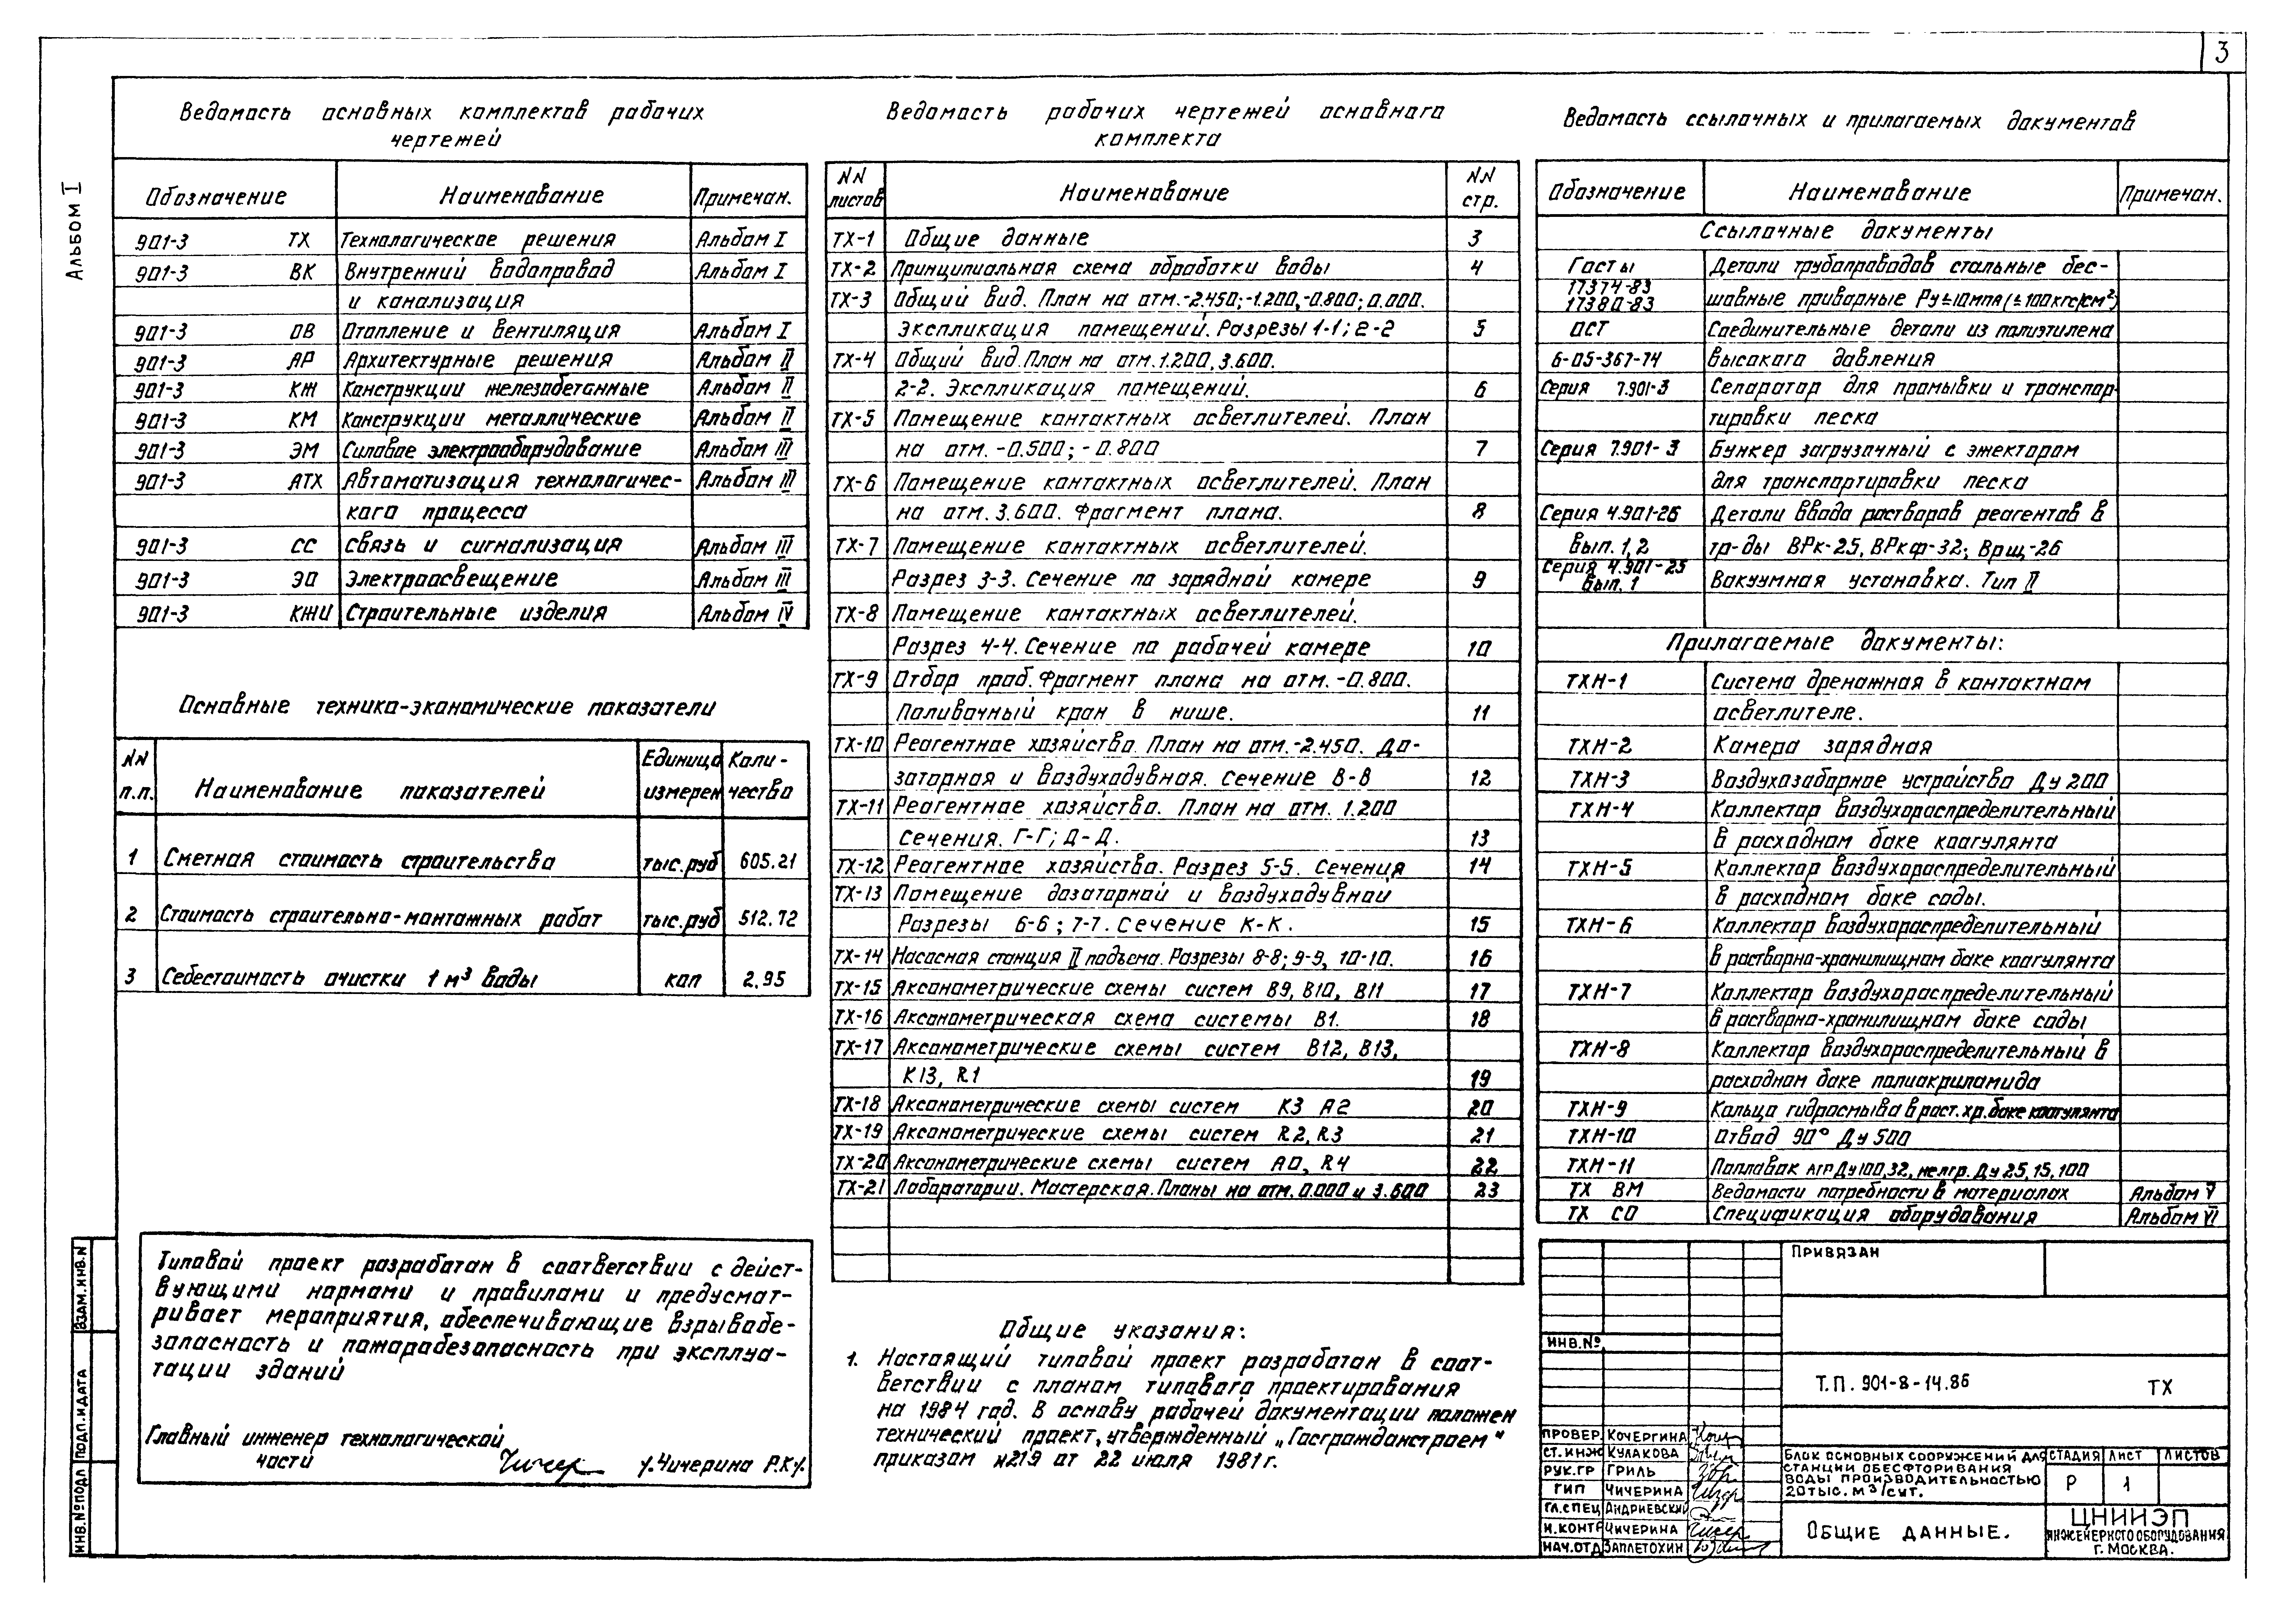 3
Альбом I
Ведомость основных комплектов рабочих
чертежей
Обозначение Наименование Примечан.
901-3 ТХ Технологические решения Альбом I
901-3 ВК Внутренний водопровод Альбом I
и канализация
901-3 ОВ Отопление и вентиляция Альбом I
901-3 АР Архитектурные решения Альбом II
901-3 КЖ Конструкции железобетонные Альбом II
901-3 КМ Конструкции металлические Альбом II
901-3 ЭМ Силовое электрооборудование Альбом III
901-3 АТХ Автоматизация технологичес- Альбом III
кого процесса
901-3 СС Связь и сигнализация Альбом III
901-3 ЭО Электроосвещение Альбом III
901-3 КЖИ Строительные изделия Альбом IV
Основные технико-экономические показатели
NN п.п. Наименование показателей Единица измерен Коли-чество
1 Сметная стоимость строительства тыс.руб 605.21
2 Стоимость строительно-монтажных работ тыс.руб 512.72
3 Себестоимость очистки 1 м³ воды коп 2.95
Типовой проект разработан в соответствии с дейст-
вующими нормами и правилами и предусмат-
ривает мероприятия, обеспечивающие взрывобе-
зопасность и пожаробезопасность при эксплуа-
тации зданий
Главный инженер технологической
части /Чичерина Р.К/.
Ведомость рабочих чертежей основного
комплекта
NN листов Наименование NN стр.
ТХ-1 Общие данные 3
ТХ-2 Принципиальная схема обработки воды 4
ТХ-3 Общий вид. План на отм.-2.450;-1.200,-0.800; 0.000.
Экспликация помещений. Разрезы 1-1; 2-2 5
ТХ-4 Общий вид. План на отм.1.200, 3.600.
2-2. Экспликация помещений. 6
ТХ-5 Помещение контактных осветлителей. План
на отм. -0.500; -0.800 7
ТХ-6 Помещение контактных осветлителей. План
на отм. 3.600. Фрагмент плана. 8
ТХ-7 Помещение контактных осветлителей.
Разрез 3-3. Сечение по зарядной камере 9
ТХ-8 Помещение контактных осветлителей.
Разрез 4-4. Сечение по рабочей камере 10
ТХ-9 Отбор проб. Фрагмент плана на отм. -0.800.
Поливочный кран в нише. 11
ТХ-10 Реагентное хозяйство. План на отм.-2.450. До-
заторная и воздуходувная. Сечение В-В 12
ТХ-11 Реагентное хозяйство. План на отм. 1.200
Сечения. Г-Г; Д-Д. 13
ТХ-12 Реагентное хозяйство. Разрез 5-5. Сечения 14
ТХ-13 Помещение дозаторной и воздуходувной
Разрезы 6-6; 7-7. Сечение К-К. 15
ТХ-14 Насосная станция II подъема. Разрезы 8-8; 9-9, 10-10. 16
ТХ-15 Аксонометрические схемы систем В9, В10, В11 17
ТХ-16 Аксонометрическая схема системы В1. 18
ТХ-17 Аксонометрические схемы систем В12, В13,
К13, R1 19
ТХ-18 Аксонометрические схемы систем К3 А2 20
ТХ-19 Аксонометрические схемы систем R2, R3 21
ТХ-20 Аксонометрические схемы систем А0, R4 22
ТХ-21 Лаборатории. Мастерская. Планы на отм. 0.000 и 3.600 23
Общие указания:
1. Настоящий типовой проект разработан в соот-
ветствии с планом типового проектирования
на 1984 год. В основу рабочей документации положен
технический проект, утвержденный „Госгражданстроем"
приказом N219 от 22 июля 1981г.
Ведомость ссылочных и прилагаемых документов
Обозначение Наименование Примечан.
Ссылочные документы
Госты Детали трубопроводов стальные бес-
17374-83
17380-83 шовные приварные Ру≤10мпа(≤100кгс/см²)
ОСТ Соединительные детали из полиэтилена
6-05-367-74 высокого давления
Серия 7.901-3 Сепаратор для промывки и транспор-
тировки песка
Серия 7.901-3 Бункер загрузочный с эжектором
для транспортировки песка
Серия 4.901-26 Детали ввода растворов реагентов в
вып. 1,2 тр-ды ВРк-25, ВРкф-32; Врщ-26
Серия 4.901-25
вып. 1 Вакуумная установка. Тип II
Прилагаемые документы:
ТХН-1 Система дренажная в контактном
осветлителе.
ТХН-2 Камера зарядная
ТХН-3 Воздухозаборное устройство Ду 200
ТХН-4 Коллектор воздухораспределительный
в расходном баке коагулянта
ТХН-5 Коллектор воздухораспределительный
в расходном баке соды.
ТХН-6 Коллектор воздухораспределительный
в растворно-хранилищном баке коагулянта
ТХН-7 Коллектор воздухораспределительный
в растворно-хранилищном баке соды
ТХН-8 Коллектор воздухораспределительный в
расходном баке полиакриламида
ТХН-9 Кольцо гидросмыва в раст. хр. баке коагулянта
ТХН-10 Отвод 90° Ду 500
ТХН-11 Поплавок агр Ду100,32, не агр. Ду 25, 15, 100
ТХ ВМ Ведомости потребности в материалах Альбом V
ТХ СО Спецификация оборудования Альбом VI
Привязан
Инв.№
Т.П. 901-8-14.86 ТХ
Провер. Кочергина
Ст.инж Кулакова
Рук.гр Гриль
ГИП Чичерина
Гл.спец Андриевский
Н.контр Чичерина
Нач.отд Заплетохин
Блок основных сооружений для
станции обесфторивания
воды производительностью
20тыс. м³/сут.
Стадия Лист Листов
Р 1
Общие данные.
ЦНИИЭП
инженерного оборудования
г. Москва.
Взам.инв.N
Подп.и дата
Инв.№подл